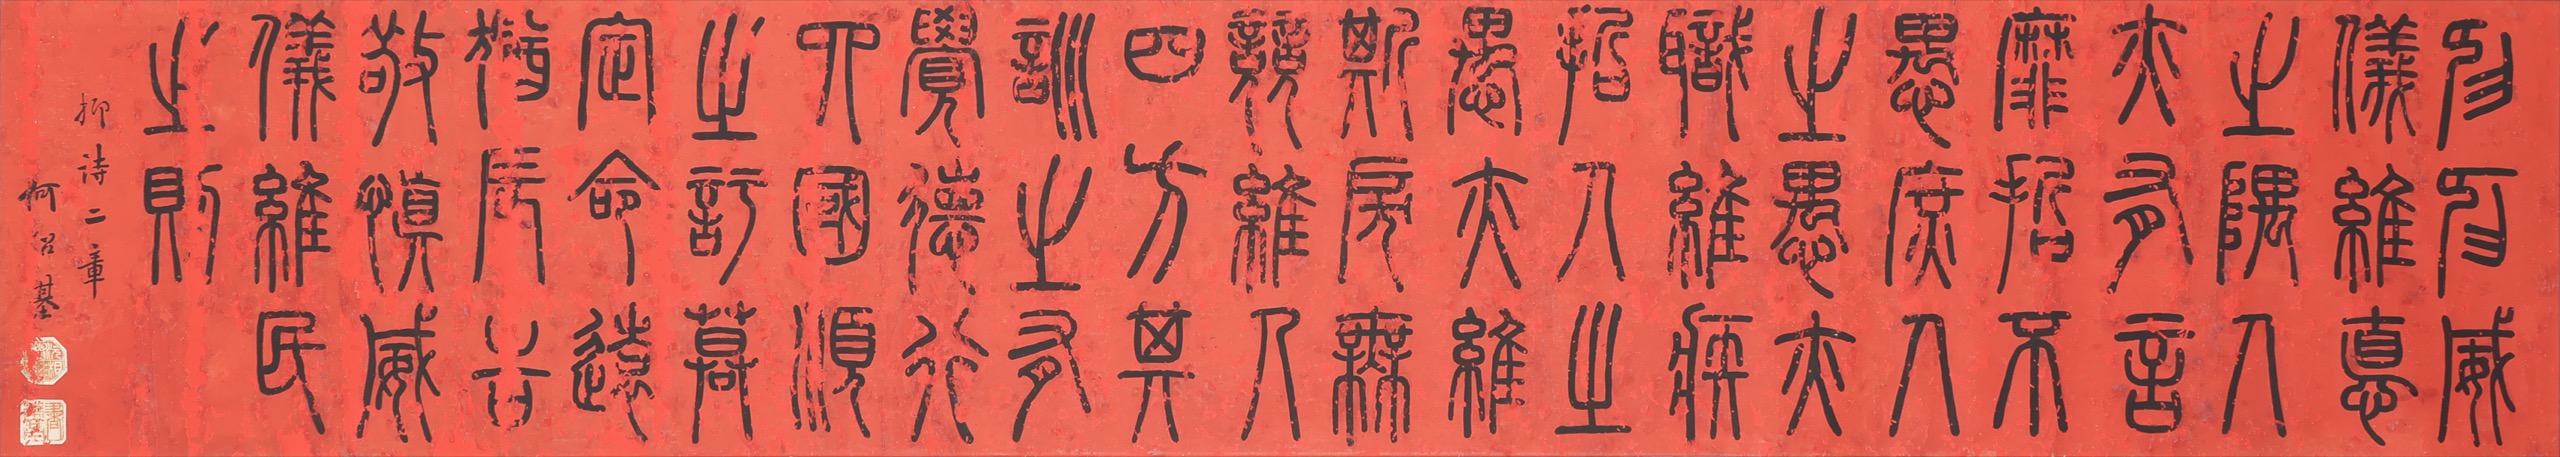 抑抑威
儀維悳
之隅人
亦有言
靡哲不
愚庶人
之愚亦
職維疾
哲人之
愚亦維
斯戾無
競維人
四方其
訓之有
覺德行
四國順
之訏謨
定命遠
猶辰告
敬慎威
儀維民
之則
抑詩二章
何紹基